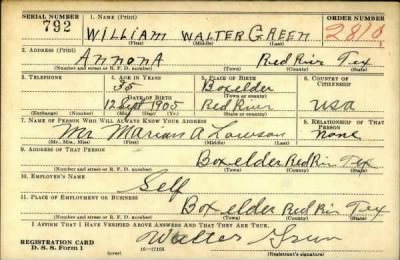 SERIAL NUMBER 1. NAME (Print) ORDER NUMBER
792 WILLIAM WALTER GREEN 2810
(First) (Middle) (Last)
2. ADDRESS (Print)
ANNONA Red Riv Tex
(Number and street or R. F. D. number) (Town) (County) (State)
3. TELEPHONE 4. AGE IN YEARS 5. PLACE OF BIRTH 6. COUNTRY OF CITIZENSHIP
35 Boxelder
DATE OF BIRTH (Town or county)
12 Sept 1905 Red River USA
(Exchange) (Number) (Mo.) (Day) (Yr.) (State or country)
7. NAME OF PERSON WHO WILL ALWAYS KNOW YOUR ADDRESS 8. RELATIONSHIP OF THAT PERSON
Mr Marion A Lawson None
(Mr., Mrs., Miss) (First) (Middle) (Last)
9. ADDRESS OF THAT PERSON
Boxelder Red Riv Tex
(Number and street or R. F. D. number) (Town) (County) (State)
10. EMPLOYER'S NAME
Self
11. PLACE OF EMPLOYMENT OR BUSINESS
Boxelder Red Riv Tex
(Number and street or R. F. D. number) (Town) (County) (State)
I AFFIRM THAT I HAVE VERIFIED ABOVE ANSWERS AND THAT THEY ARE TRUE.
REGISTRATION CARD Walter Green
D. S. S. Form 1 16—17105 (Registrant's signature)